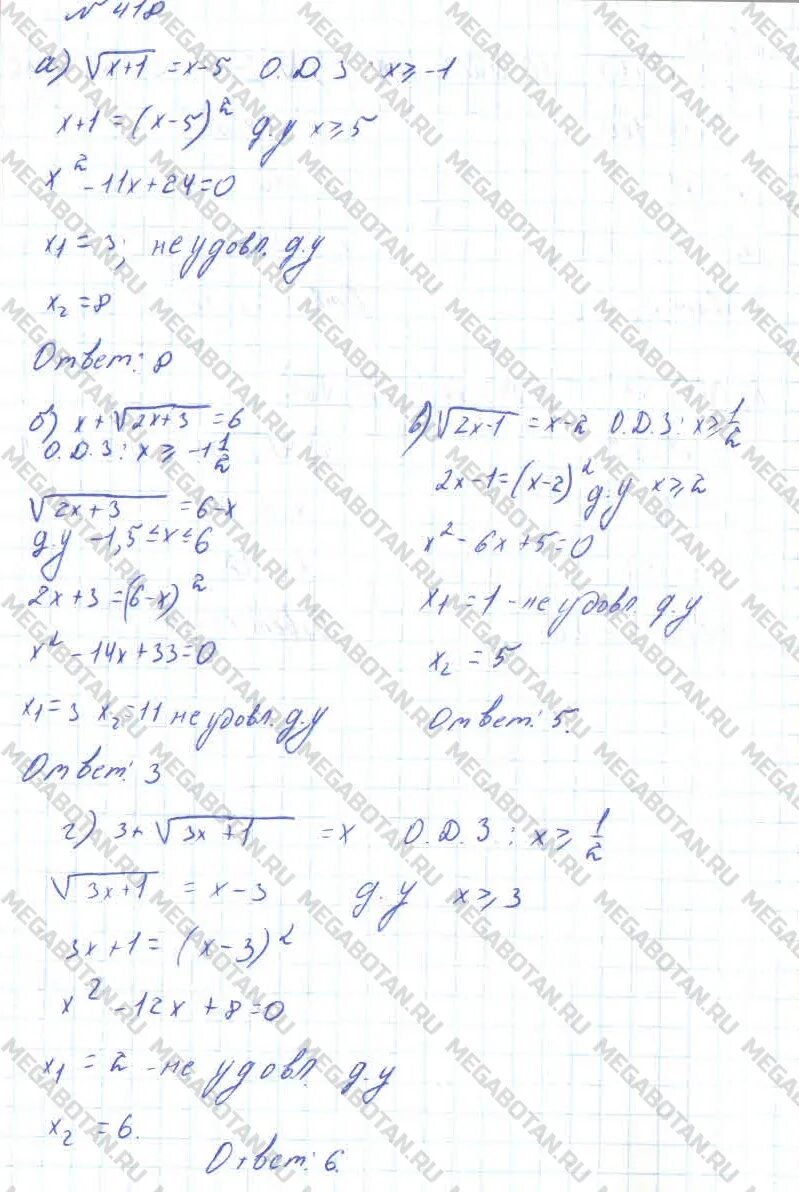 № 418
а) √(x+1) = x-5 О.Д.З : x ≥ -1
x+1 = (x-5)² д.у x ≥ 5
x² - 11x + 24 = 0
x₁ = 3; не удовл. д.у
x₂ = 8
Ответ: 8
б) x + √(2x+3) = 6
О.Д.З : x ≥ -1 1/2
√(2x+3) = 6-x
д.у -1,5 ≤ x ≤ 6
2x+3 = (6-x)²
x² - 14x + 33 = 0
x₁ = 3 x₂ = 11 не удовл. д.у
Ответ: 3
в) √(2x-1) = x-2 О.Д.З : x ≥ 1/2
2x-1 = (x-2)² д.у x ≥ 2
x² - 6x + 5 = 0
x₁ = 1 - не удовл. д.у
x₂ = 5
Ответ: 5.
г) 3 + √(3x+1) = x О.Д.З : x ≥ 1/2
√(3x+1) = x-3 д.у x ≥ 3
3x+1 = (x-3)²
x² - 12x + 8 = 0
x₁ = 2 - не удовл. д.у
x₂ = 6.
Ответ: 6.
MEGABOTAN.RU